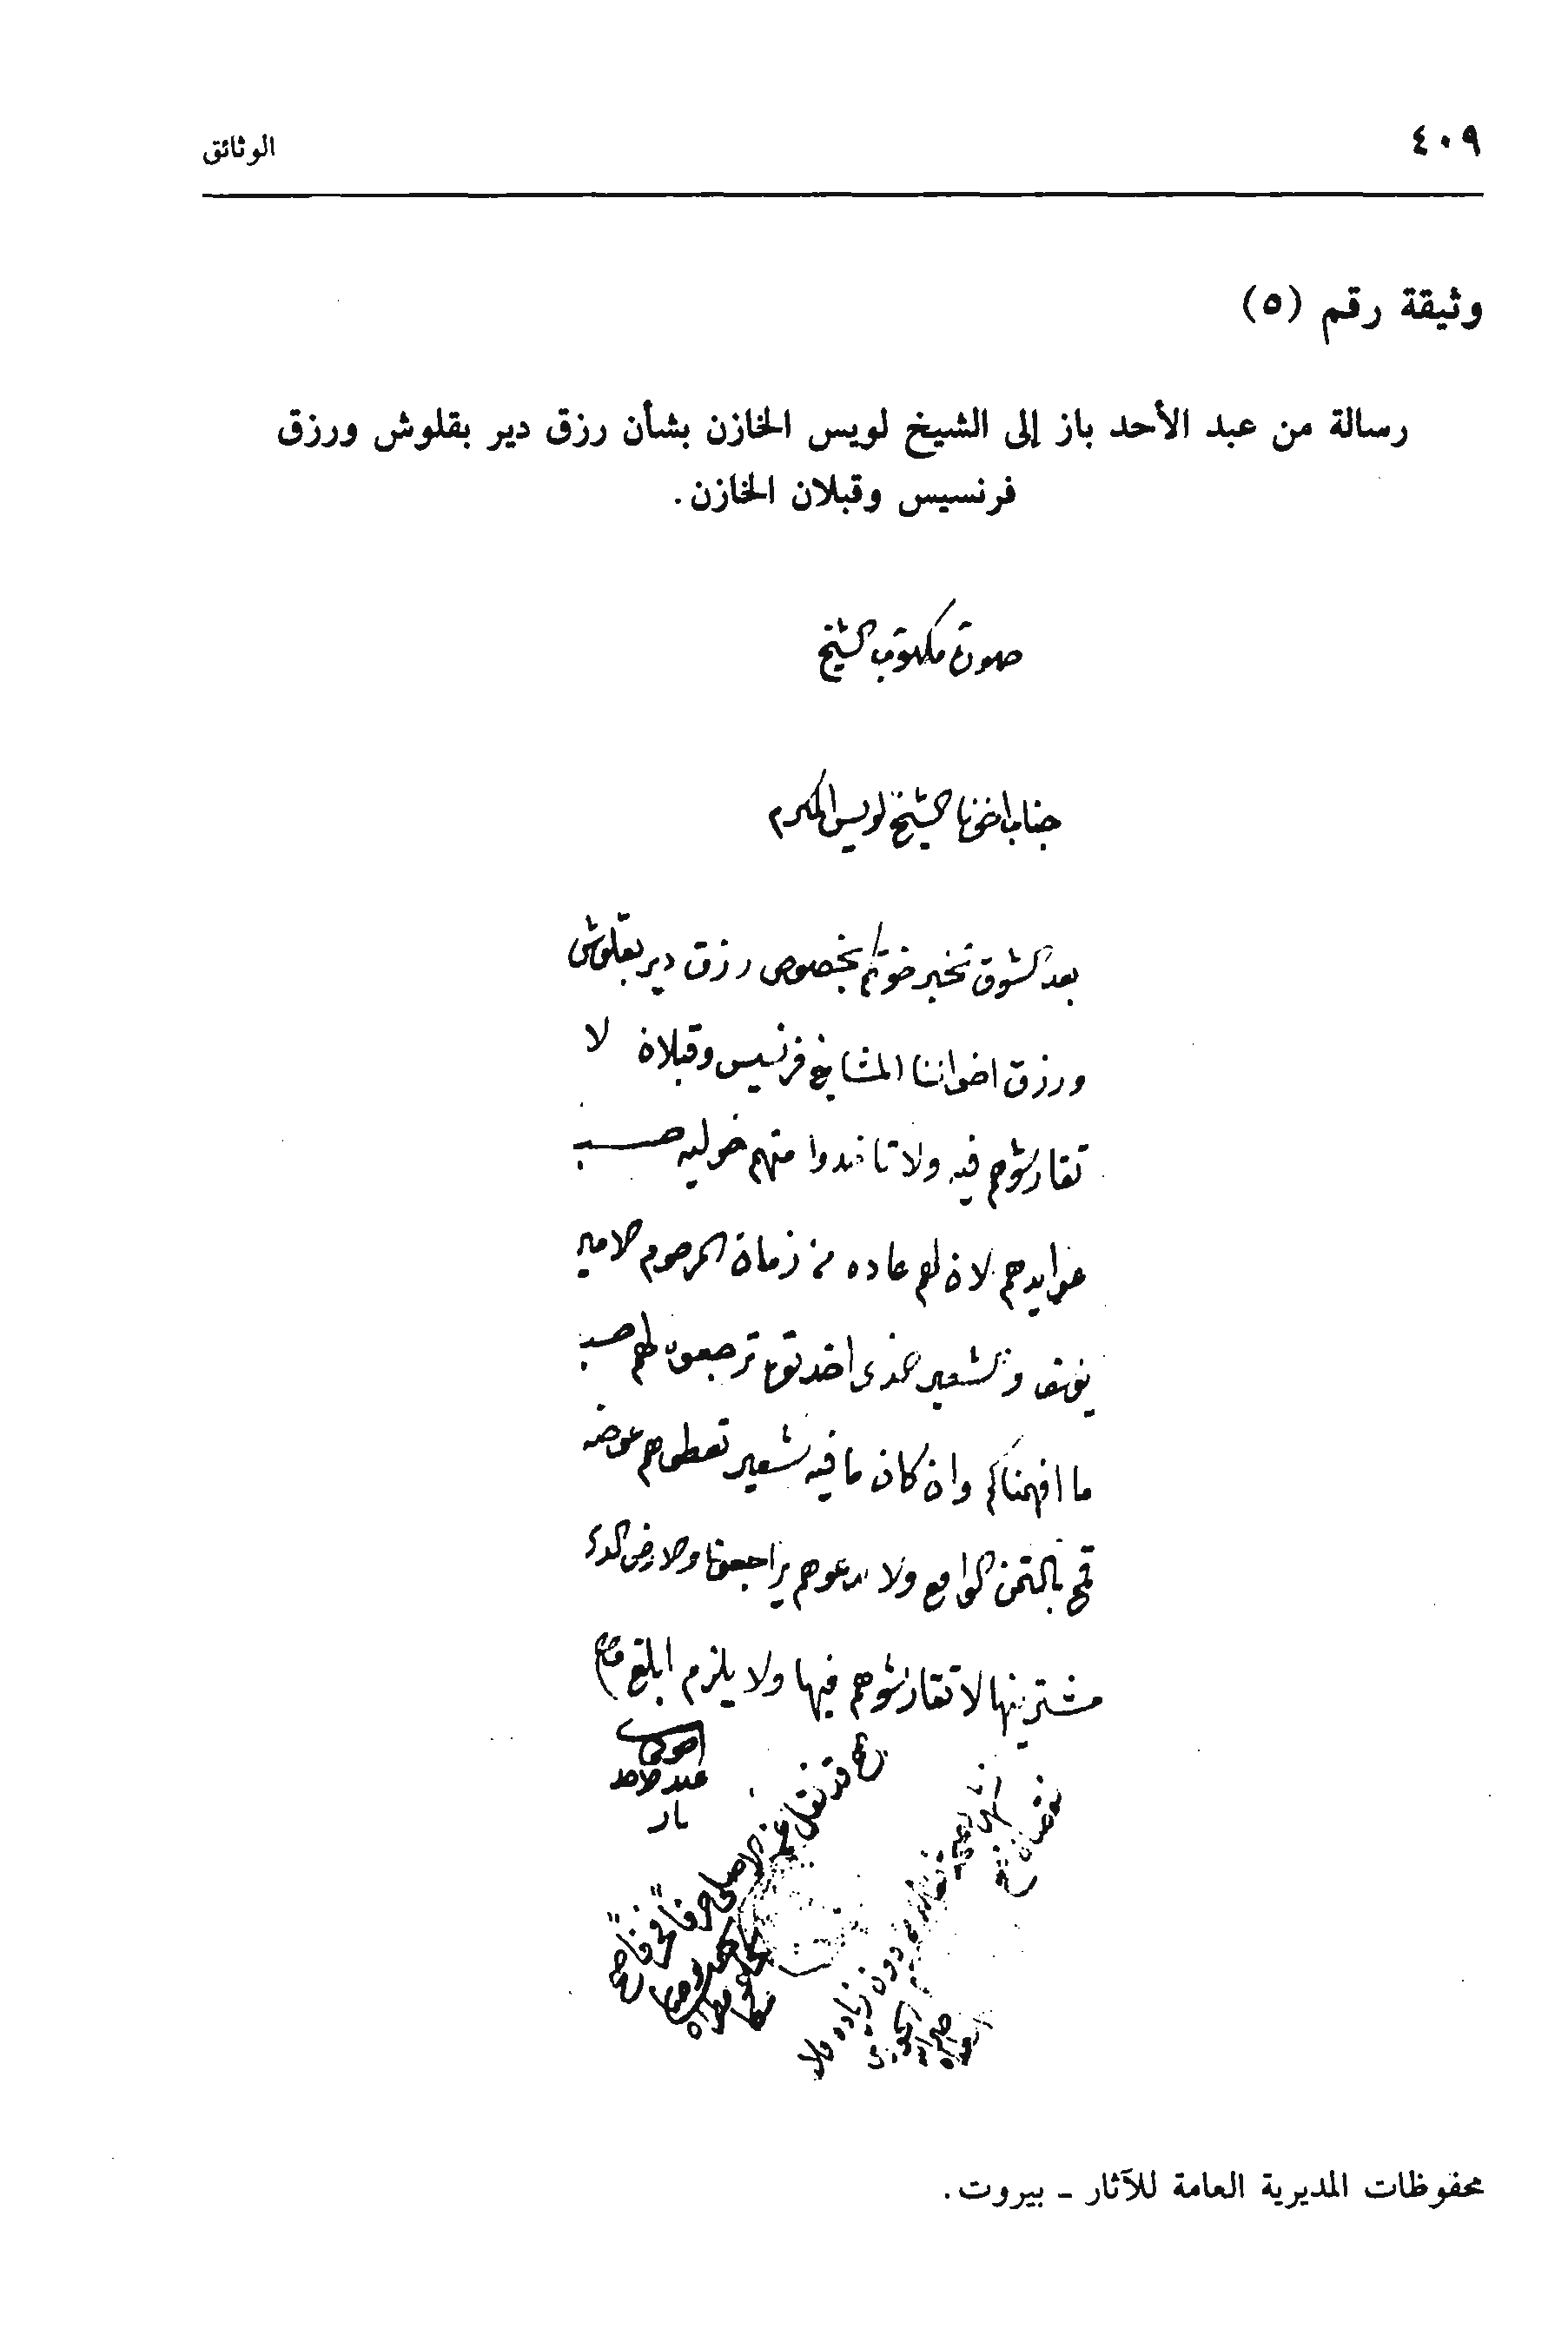 ٤٠٩
الوثائق
وثيقة رقم (٥)
رسالة من عبد الأحد باز إلى الشيخ لويس الخازن بشأن رزق دير بقلوش ورزق
فرنسيس وقبلان الخازن.
صورة مكتوب الشيخ
جناب اخونا الشيخ لويس المكرم
بعد الشوق نخبر خوتكم بخصوص رزق دير بقلوش
ورزق اخواننا المشايخ فرنسيس وقبلان لا
تقارشوهم فيه ولا تاخدوا منهم خوليه حسب
عوايدهم لان لهم عاده من زمان المرحوم الامير
يوسف والشعير الذى اخدتوه ترجعوه لهم حسب
ما افهمناكم وان كان ما فيه شعير تعطوهم عوضه
قمح بالتمن الواقع ولا تدعوهم يراجعونا والارض الدى
مشترينها لا تقارشوهم فيها ولا يلزم ابلغ
عبد الاحد
باز
قد نقل عن الاصل حرفاً فحرفاً صح
دون زياده ولا
نقصان صح
محفوظات المديرية العامة للآثار ـ بيروت.